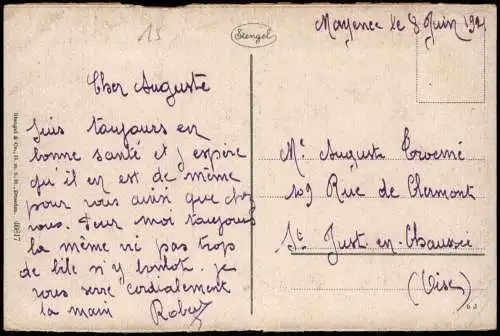 15
Stengel
Mayence le 8 Juin 1921
Cher Auguste
Suis toujours en
bonne santé et j espère
qu'il en est de même
pour vous ainsi que chez
vous. Pour moi toujours
la même vie pas trop
de bile n'y boulot. je
vous serre cordialement
la main Robert
Mr Auguste
109 Rue de Clermont
St Just-en-Chaussée
(Oise)
Stengel & Co., G. m. b. H., Dresden. 49817